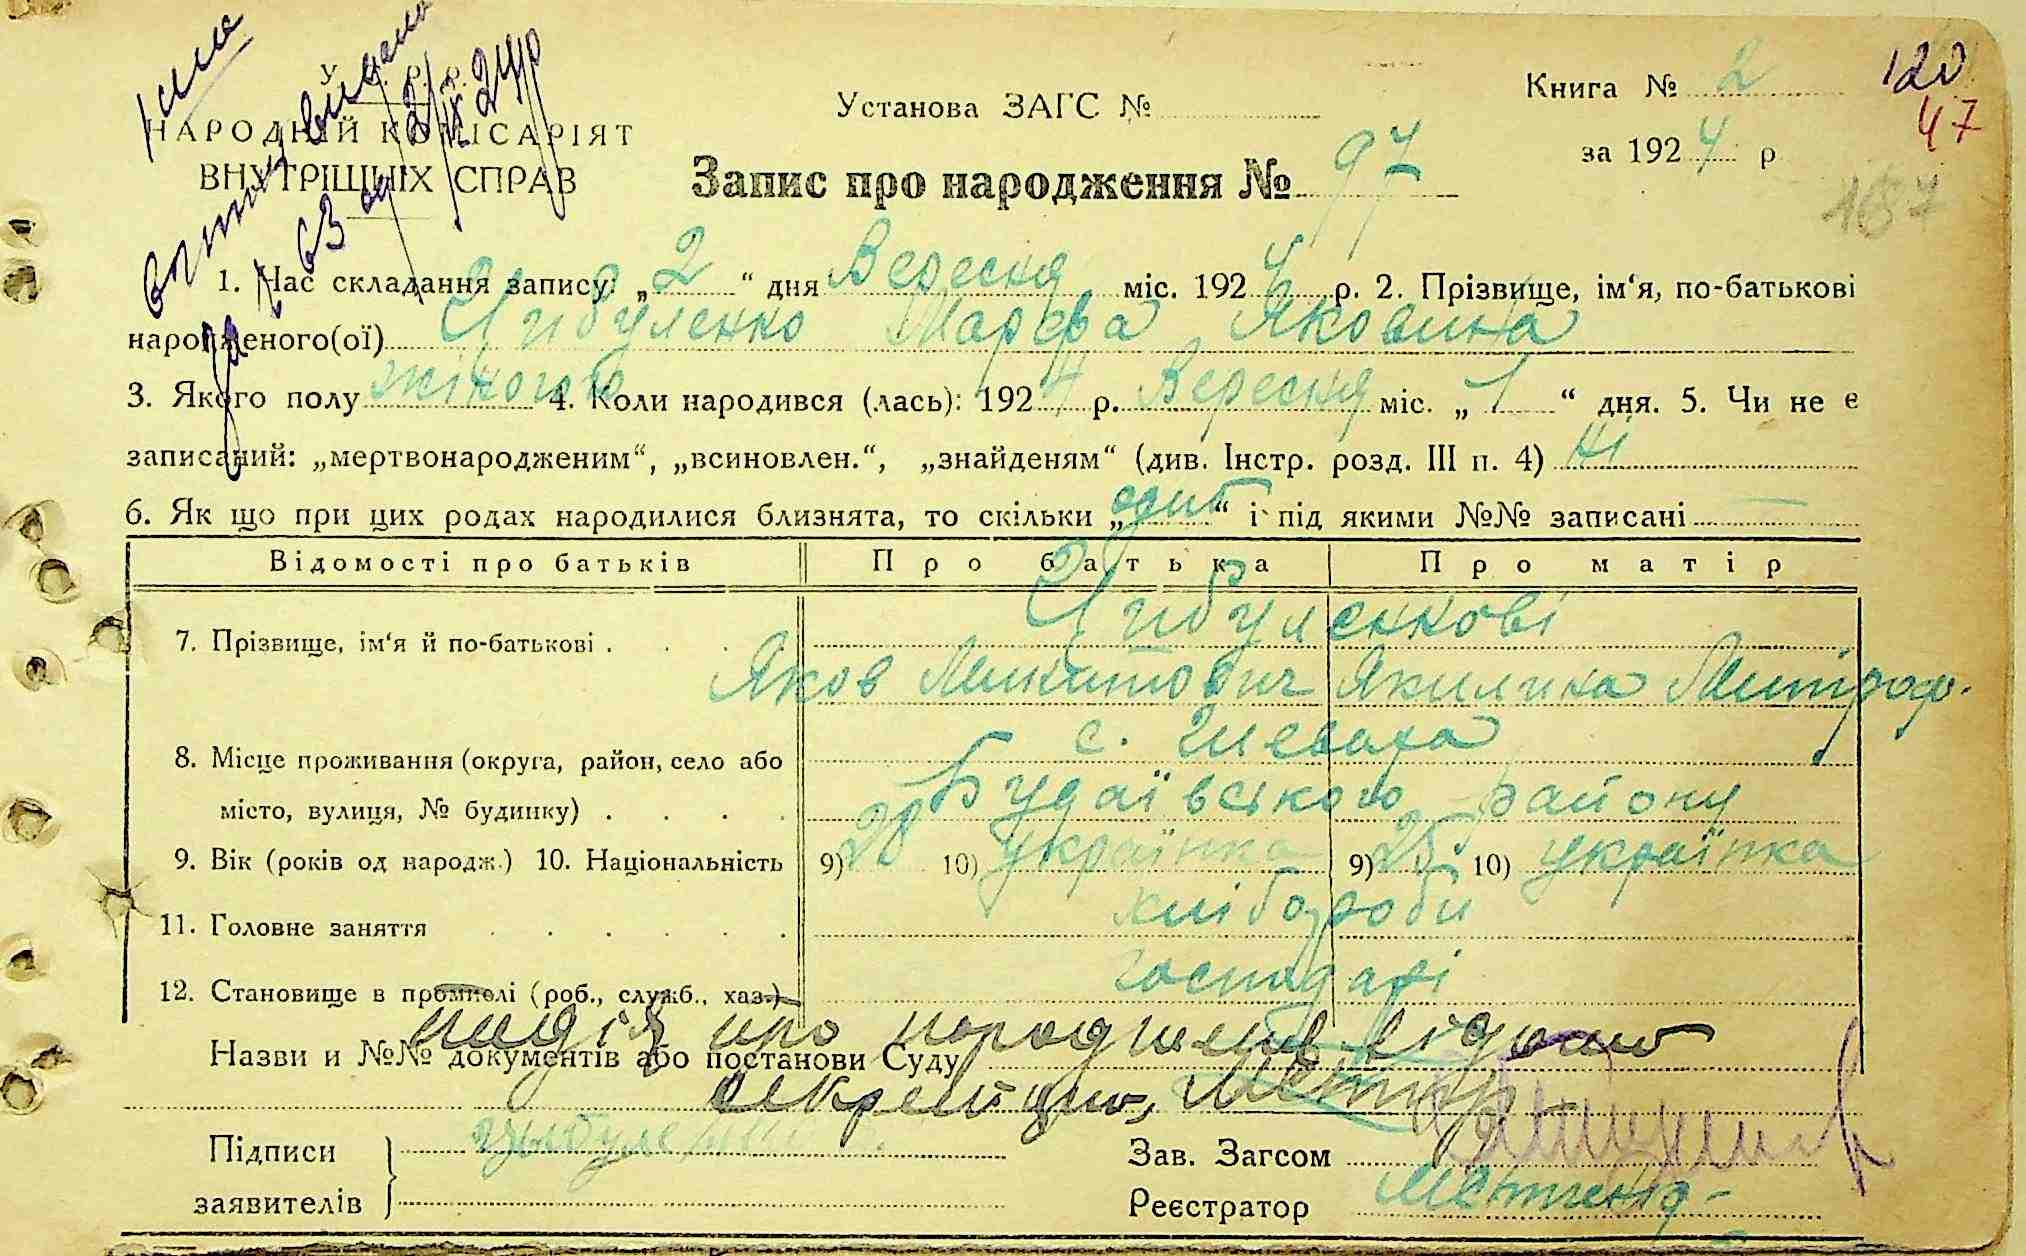 У. С. Р. Р.
НАРОДНІЙ КОМІСАРІЯТ
ВНУТРІШНІХ СПРАВ
виписку видано
за № 63 від 2/IX 24 р
Установа ЗАГС №
Книга № 2
за 1924 р
120
47
187
Запис про народження № 97
1. Час складання запису: „2“ дня Вересня міс. 1924 р. 2. Прізвище, ім‘я, по-батькові
народженого(ої) Цибуленко Марфа Яковина
3. Якого полу жіночого 4. Коли народився (лась): 1924 р. Вересня міс. „1“ дня. 5. Чи не є
записаний: „мертвонародженим“, „всиновлен.“, „знайденям“ (див. Інстр. розд. III п. 4) ні
6. Як що при цих родах народилися близнята, то скільки „один“ і під якими №№ записані —
Відомості про батьків Про батька Про матір
Цибуленкові
7. Прізвище, ім‘я й по-батькові . . .
Яков Микитович Якилина Митроф.
8. Місце проживання (округа, район, село або
місто, вулиця, № будинку) . . . .
с.
Будаївського району
9. Вік (років од народж.) 10. Національність 9) 28 10) українка 9) 25 10) українка
11. Головне заняття . . . . . . хлібороби
12. Становище в промислі (роб., служб., хаз.) господарі
Назви и №№ документів або постанови Суду
про народження
Підписи
заявителів
Цыбуленко
Зав. Загсом
Реєстратор